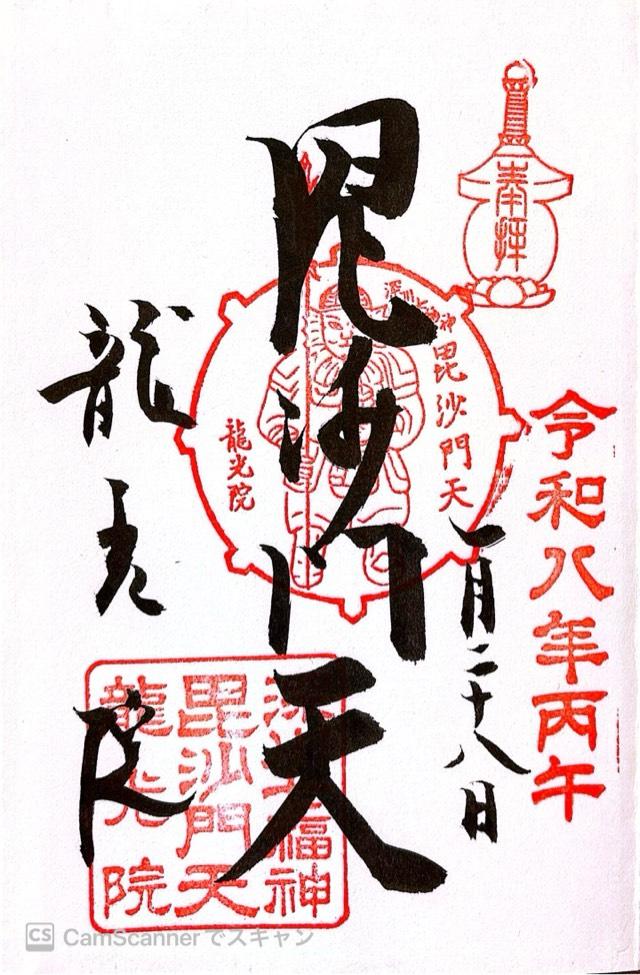 奉拝
令和八年丙午
一月二十八日
深川七福神
毘沙門天
龍光院
毘沙門天
龍光院
深川七福神
毘沙門天
龍光院
CS CamScanner でスキャン